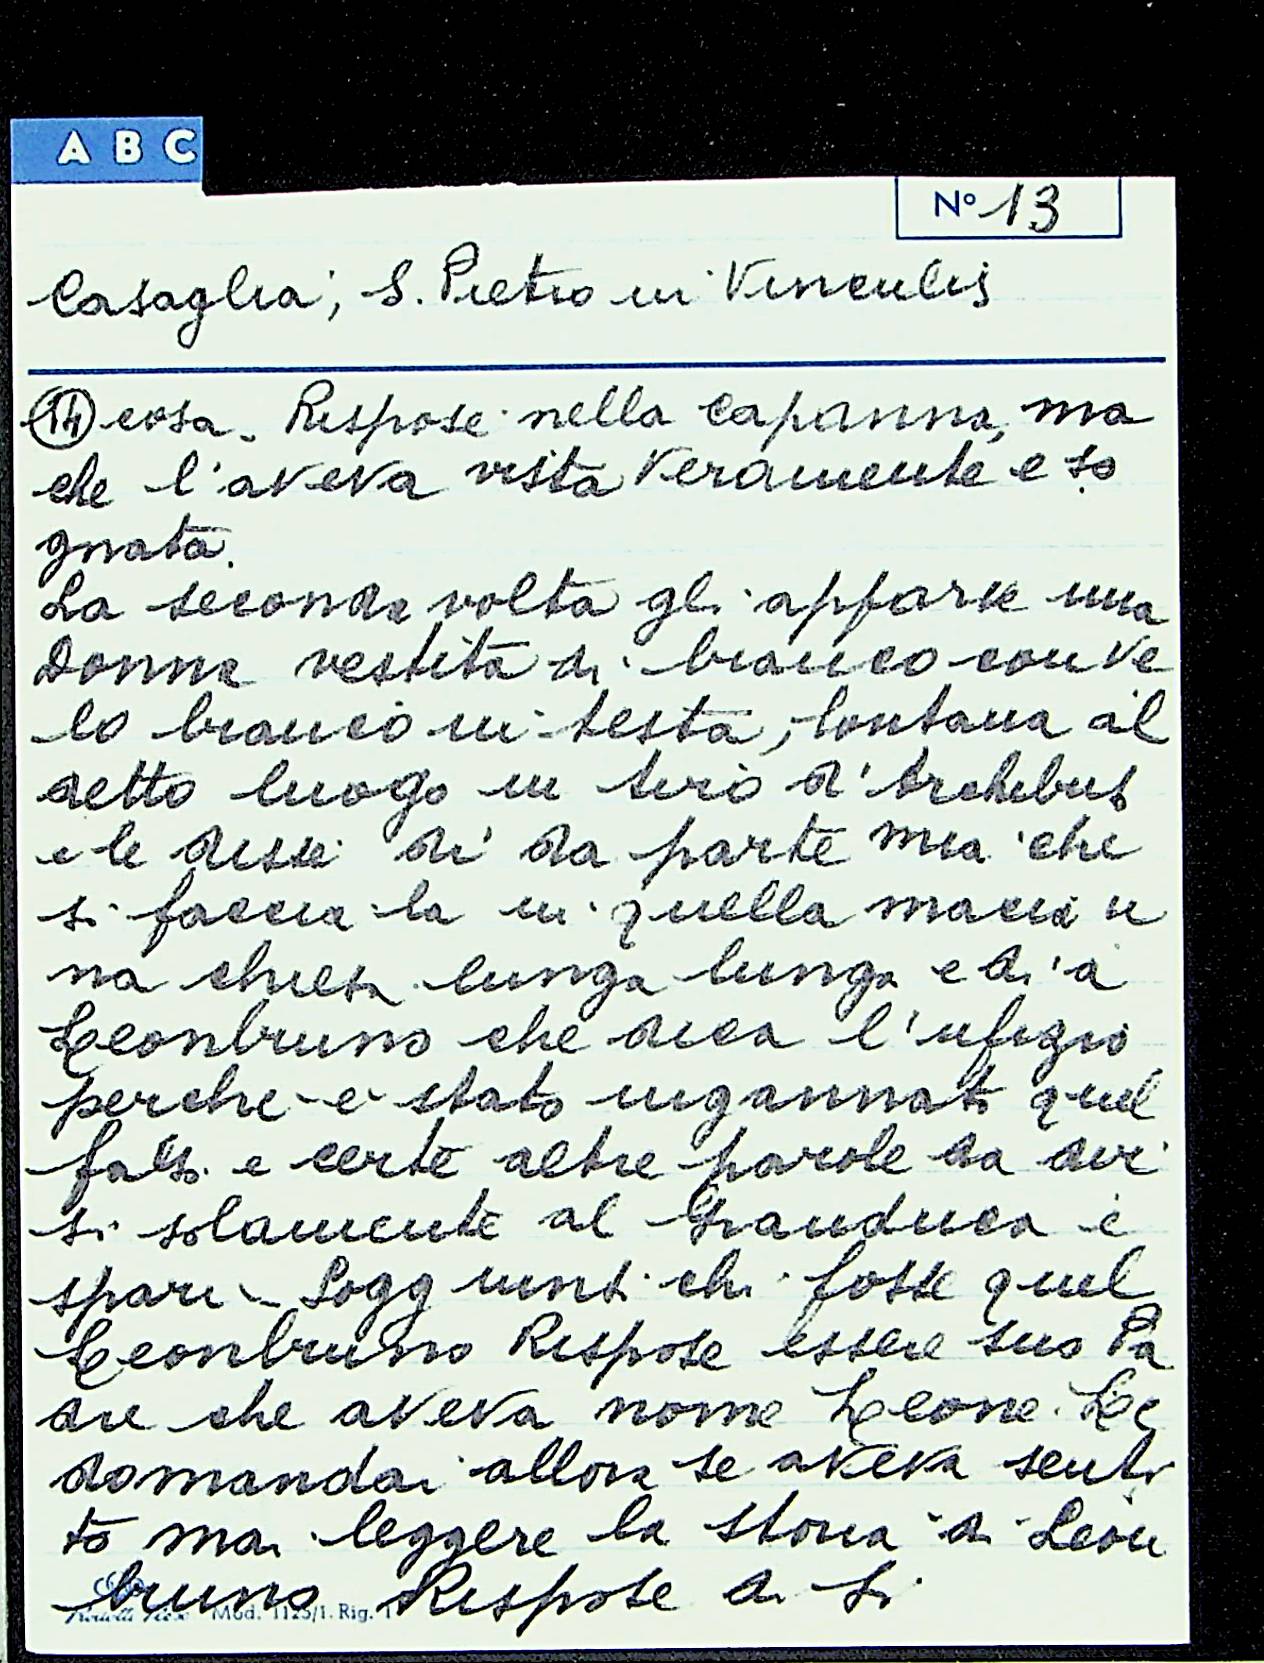 A B C
N° 13
Casaglia, S. Pietro in Vinculis
14 cosa. Rispose nella capanna, ma
che l'aveva vista veramente e so
gnata.
La seconda volta gli apparse una
donna vestita di bianco con ve
lo bianco in testa, lontana al
detto luogo un tiro d'Archibus
e le disse di' da parte mia che
si faccia la in quella macia u
na chiesa lunga lunga e di' a
Leonbruno che dica l'ufizio
perche e' stato ingannato quel
e certe altre parole da dir
si solamente al Granduca e
spari - Soggiunsi chi fosse quel
Leonbruno Rispose essere suo Pa
dre che aveva nome Leone. Le
domandai allora se aveva senti
to mai leggere la storia di Leon
bruno Rispose di Si
Mod. 1125/1. Rig. 1